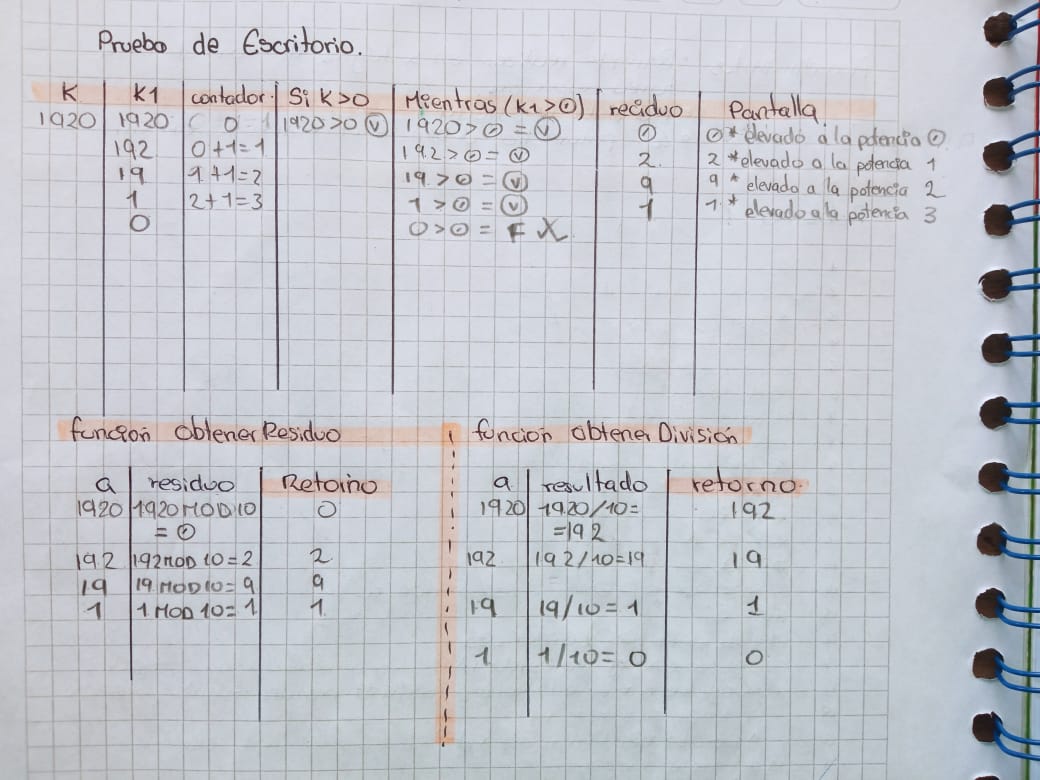 Prueba de Escritorio.
K K1 contador Si K>0 Mientras (K1>0) reciduo Pantalla
1920 1920 0 1920>0 V 1920>0 = V 0 0* elevado a la potencia 0
192 0+1=1 192>0 = V 2 2 *elevado a la potencia 1
19 1+1=2 19>0 = V 9 9 * elevado a la potencia 2
1 2+1=3 1>0 = V 1 1 * elevado a la potencia 3
0 0>0 = F X
función obtener Residuo
a residuo Retorno
1920 1920 MOD 10 0
= 0
192 192 MOD 10=2 2
19 19 MOD 10= 9 9
1 1 MOD 10= 1 1
función obtener División
a resultado retorno.
1920 1920/10= 192
=192
192 192/10=19 19
19 19/10= 1 1
1 1/10= 0 0